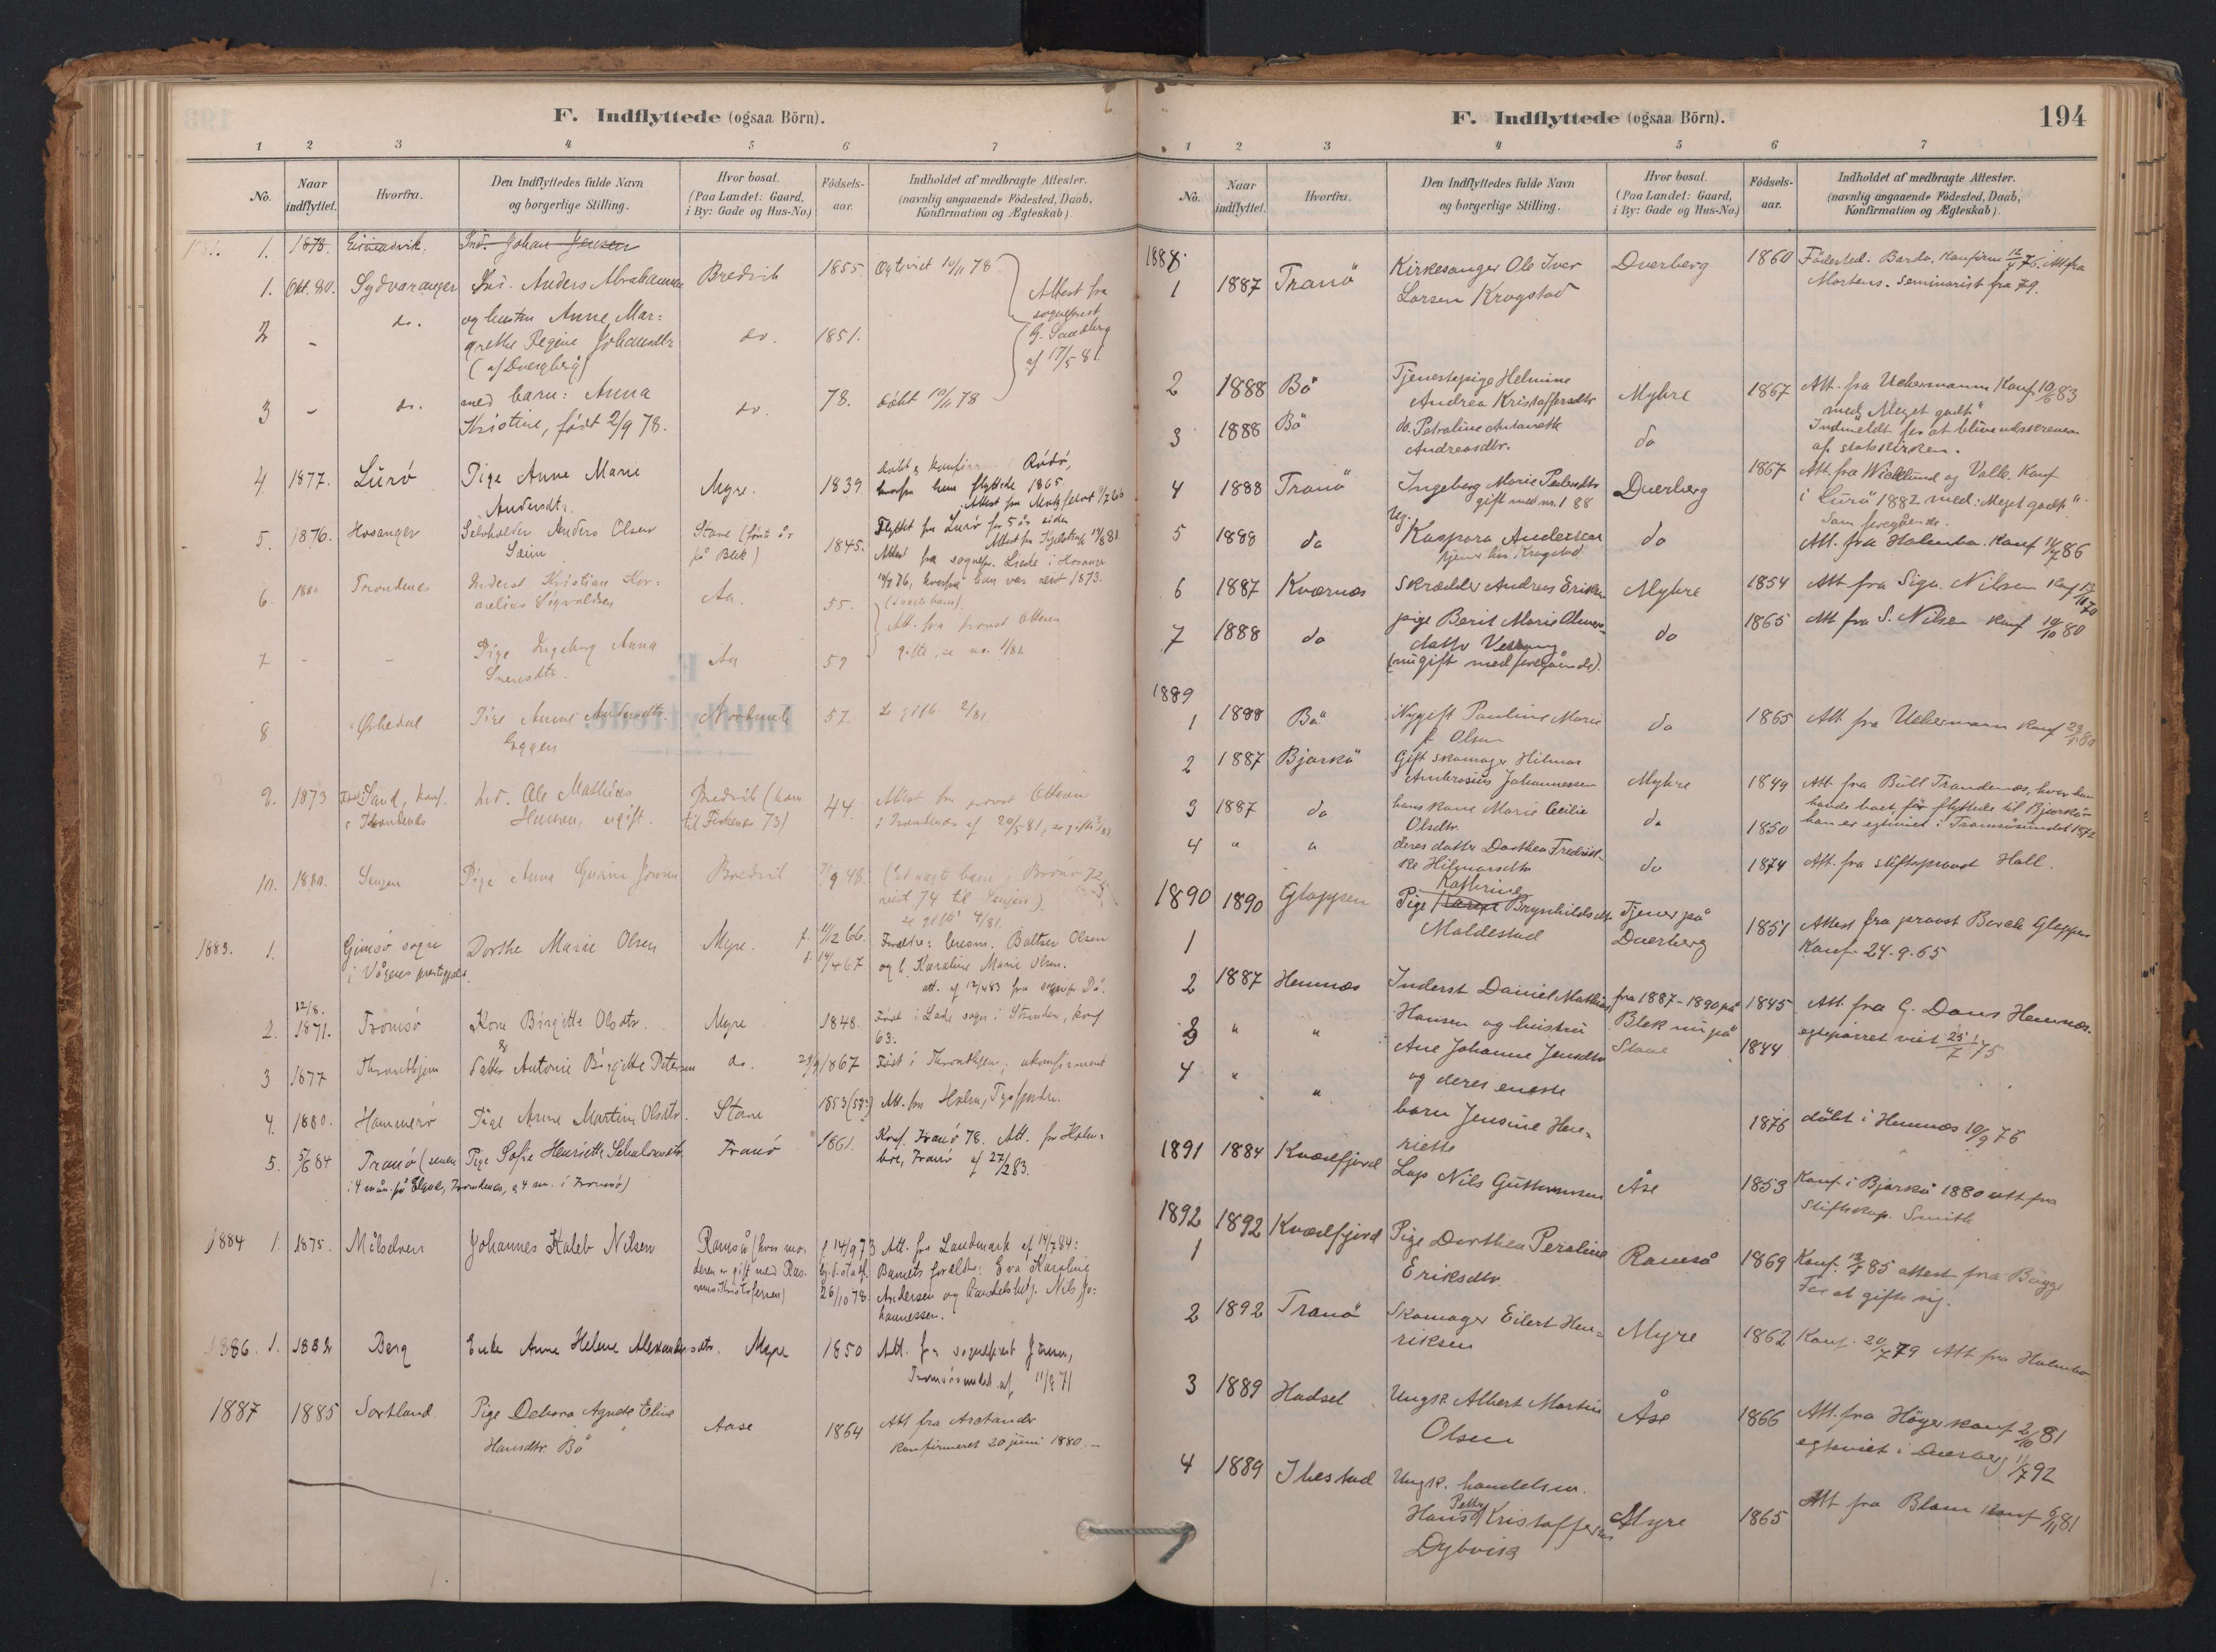 F. Indflyttede (ogsaa Börn).
1 2 3 4 5 6 7
No.
Naar
indflyttet.
Hvorfra.
Den Indflyttedes fulde Navn
og borgerlige Stilling.
Hvor bosat.
(Paa Landet: Gaard,
i By: Gade og Hus-No.)
Fødsels-
aar.
Indholdet af medbragte Attester.
(navnlig angaaende Fødested, Daab,
Konfirmation og Ægteskab).
1. 1878. Johan Jensen
1. Okt. 80. Sydvaranger Anders Abrahamsen Bredvik 1855. Egteviet 10/11 78.
2 - do. og hustru Anne Mar=
grethe Regine Johansdtr do. 1851.
(af Dvergberg)
Attest fra
sogneprest
G. Sandberg
af 17/5 81.
3 - do. med barn: Anna do. 78. döbt 10/11 78
Kristine, födt 2/9 78.
4 1877. Lurö Pige Anne Marie Myre. 1839.
Andersdtr.
Rödö,
flyttede 1865.
5. 1876. Hosanger Selvholder Anders Olsen Stave (förste år 1845.
på Blek)
Flyttet fra Lurö for 5 år siden
Attest fra sognepr. i Hosanger
hvorfra han var reist 1873.
6. 1880 Trondenes Inderst Kristian Kor=
nelius Sigvaldsen Aa. 55.
7 - - Pige Ingeborg Anna Aa 59
Att. fra provst Ottesen
gifte, se no. 1/81.
8 Ørkedal Pige Anne Andersdtr. 57. Se gifte 2/81.
9. 1873 Sand, konf.
i Trondenes
Ind. Ole Mathias Bredvik (kom 44.
Hansen, ugift. til Fiskenes 73)
Attest fra provst Ottesen
i Trondenes af 20/5 81, se gifte 3/81
10. 1880. Senjen Pige Anna Jensen Bredvik 7/9 48.
reist 74 til Senjen).
se gifte 4/81.
1883. 1. Gimsö sogn Dorthe Marie Olsen Myre. f. 11/2 66.
i Vågens prestegjeld d. 14/4 67.
Forældre: husm. Baltser Olsen
og h. Karoline Marie Olsen.
att. af 12/4 83 fra sognepr. Dö.
22/8.
2. 1871. Tromsö Kone Birgitte Olsdtr. Myre 1848. Födt i Lade sogn i Strinden, konf
63.
3 1877 Throndhjem Datter Antonie Birgitte Petersen do. 29/9 1867 Födt i Throndhjem; ukonfirmeret
4. 1880. Hammerö Pige Anne Martine Olsdtr. Stave 1853 (58?) Att. fra Holm, Tysfjorden.
5. 5/6 84 Tranö (senere Pige Sofie Henriette Tranö 1861. Konf. Tranö 78. Att. fra Holm=
i 4 mån. på Elgnes, Trondenes, og 4 m. i Tromsö) boe, Tranö af 27/2 83.
1884 1. 1875. Målselven Johannes Kaleb Nilsen Ramså (hvor mo- f 14/9 73 Att. fra Landmark af 14/7 84:
deren er gift med Ras- Barnets forældre: Eva Karoline
mus Kristoffersen) 26/10 78 Andersen og Handelsbetj. Nils Jo=
hannessen.
1886. 1. 1882 Berg Enke Anne Helene Alexandersdtr. Myre 1850 Att. fra sogneprest
Tromsösundet af 11/8 71
1887 1885 Sortland Pige Debora Agnete Eline Aase 1864 Att fra Astander
Hansdtr Bö Konfirmeret 20 juni 1880. -
F. Indflyttede (ogsaa Börn).
194
1 2 3 4 5 6 7
No.
Naar
indflyttet.
Hvorfra.
Den Indflyttedes fulde Navn
og borgerlige Stilling.
Hvor bosat.
(Paa Landet: Gaard,
i By: Gade og Hus-No.)
Fødsels-
aar.
Indholdet af medbragte Attester.
(navnlig angaaende Fødested, Daab,
Konfirmation og Ægteskab).
1888.
1 1887 Tranö Kirkesanger Ole Iver Dverberg 1860 Födested. Bardo. Konfirm 12/4 76. Att fra
Larsen Krogstad Mortens. Seminarist fra 79.
2 1888 Bö Tjenestepige Helmine Myhre 1867 Att. fra Uchermann Konf 10/6 83
Andrea Kristoffersdtr med "Meget godt"
3 1888 Bö do. Petroline Antonette do Indmeldt for at blive udskreven
Andreasdtr. af statskirken.
4 1888 Tranö Ingeborg Marie Pedersdtr Dverberg 1867 Att. fra Wicklund og Valle. Konf
gift med nr. 1 88 i Lurö 1882 med: "Meget godt".
5 1888 do Ug. Kaspara Andersen do Som foregående.
tjener hos Krogstad Att. fra Holmbo. Konf 11/7 86
6 1887 Kværnes Skrædder Andreas Eriksen Myhre 1854 Att fra Sign. Nilsen Konf 13/11 70
7 1888 do pige Berit Marie do 1865 Att fra S. Nilsen Konf 10/10 80
(nu gift med foregående).
1889
1 1888 Bö Nygift Pauline Marie do 1865 Att fra Uchermann Konf 23/5 80
f. Olsen
2 1887 Bjarkö Gift Skomager Hilmar
Ambrosius Johannessen Myhre 1849 Att. fra Bull Trondenes, hvor han
3 1887 do hans kone Marie Cecilie do 1850 havde boet för flyttede til Bjarkö-
Olsdtr. han er egteviet i Tromsösundet 1872
4 " " deres datter Dorthea Fredrik-
ke Hilmarsdtr do 1874 Att. fra stiftsprovst Hall.
1890
1 1890 Gloppen Pige Kathrine Brynhildsdtr Tjener på 1851 Attest fra provst Barak Gloppen
Moldestad Dverberg Konf. 24.9.65
2 1887 Hemnes Inderst Daniel Mathias fra 1887-1890 på 1845 Att. fra G. Dons Hemnes.
3 " " Hansen og hustru Blek nu på egteparret viet 25/7 75
Ane Johanne Jensdtr Stave 1844
4 " " og deres eneste
barn Jensine Hen= 1876 döbt i Hemnes 10/9 76
riette
1891 1884 Kvædfjord Lap Nils Guttormsen Åse 1853 Konf. i Bjarkö 1880 att fra
Stiftskap. Smith
1892
1 1892 Kvædfjord Pige Dorthea Peroline Ramså 1869 Konf. 13/5 85 attest fra Bugge
Eriksdtr. For at gifte sig.
2 1892 Tranö Skomager Eilert Hen= Myre 1862 Konf. 20/7 79 Att fra Holmbo
riksen
3 1889 Hadsel Ungk. Albert Martin Åse 1866 Att. fra Höyer konf 2/10 81
Olsen egteviet i Dverberg 11/7 92
4 1889 Ibestad Ungk. handelsm.
Hans Petter Kristoffersen Myre 1865 Att fra Blom konf 6/11 81
Dybvik